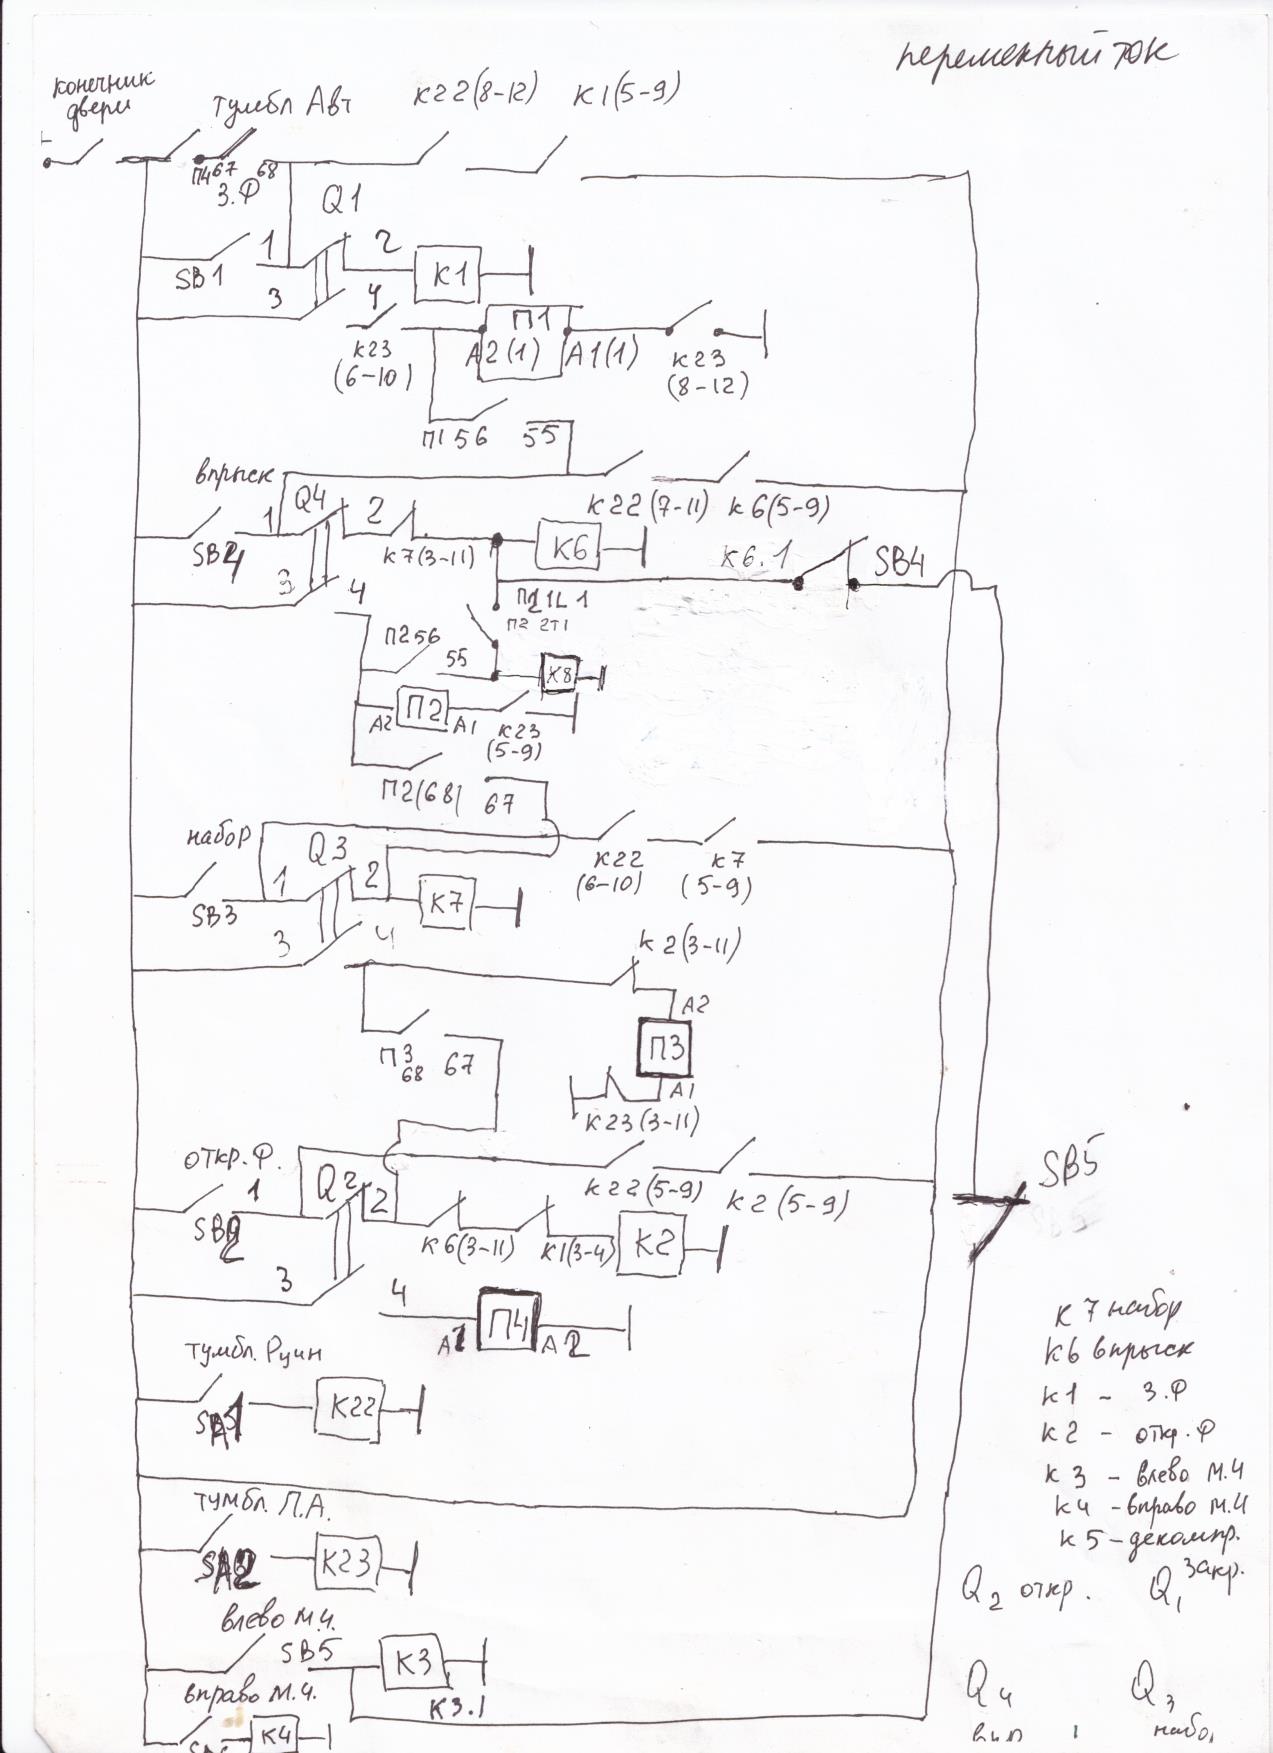 переменный ток
конечник
двери
тумбл Авт
К22(8-12)
К1(5-9)
П4 67 68
З.Ф
Q1
SB1
1
2
К1
3
4
К23
(6-10)
П1
А2(1)
А1(1)
К23
(8-12)
П1 56
55
впрыск
Q4
1
2
К22(7-11)
К6(5-9)
SB4
К7(3-11)
К6
К6.1
SB4
3
4
П2 1L1
П2 2Т1
П2 56
55
К8
А2
П2
А1
К23
(5-9)
П2(68)
67
набор
Q3
1
2
К22
(6-10)
К7
(5-9)
SB3
К7
3
4
К2(3-11)
А2
П3
А1
П3
68
67
К23(3-11)
откр.Ф.
1
Q2
2
К22(5-9)
К2(5-9)
SB5
SB2
К6(3-11)
К1(3-4)
К2
3
4
А1
П4
А2
К7 набор
К6 впрыск
К1 - З.Ф
К2 - откр.Ф
К3 - влево М.Ч
К4 - вправо М.Ч
К5 - декомпр.
Q2 откр.
Q1 закр.
тумбл. Руин
К22
тумбл. П.А.
SA2
К23
влево м.ч.
SB5
К3
К3.1
вправо м.ч.
К4
Q4
Q3